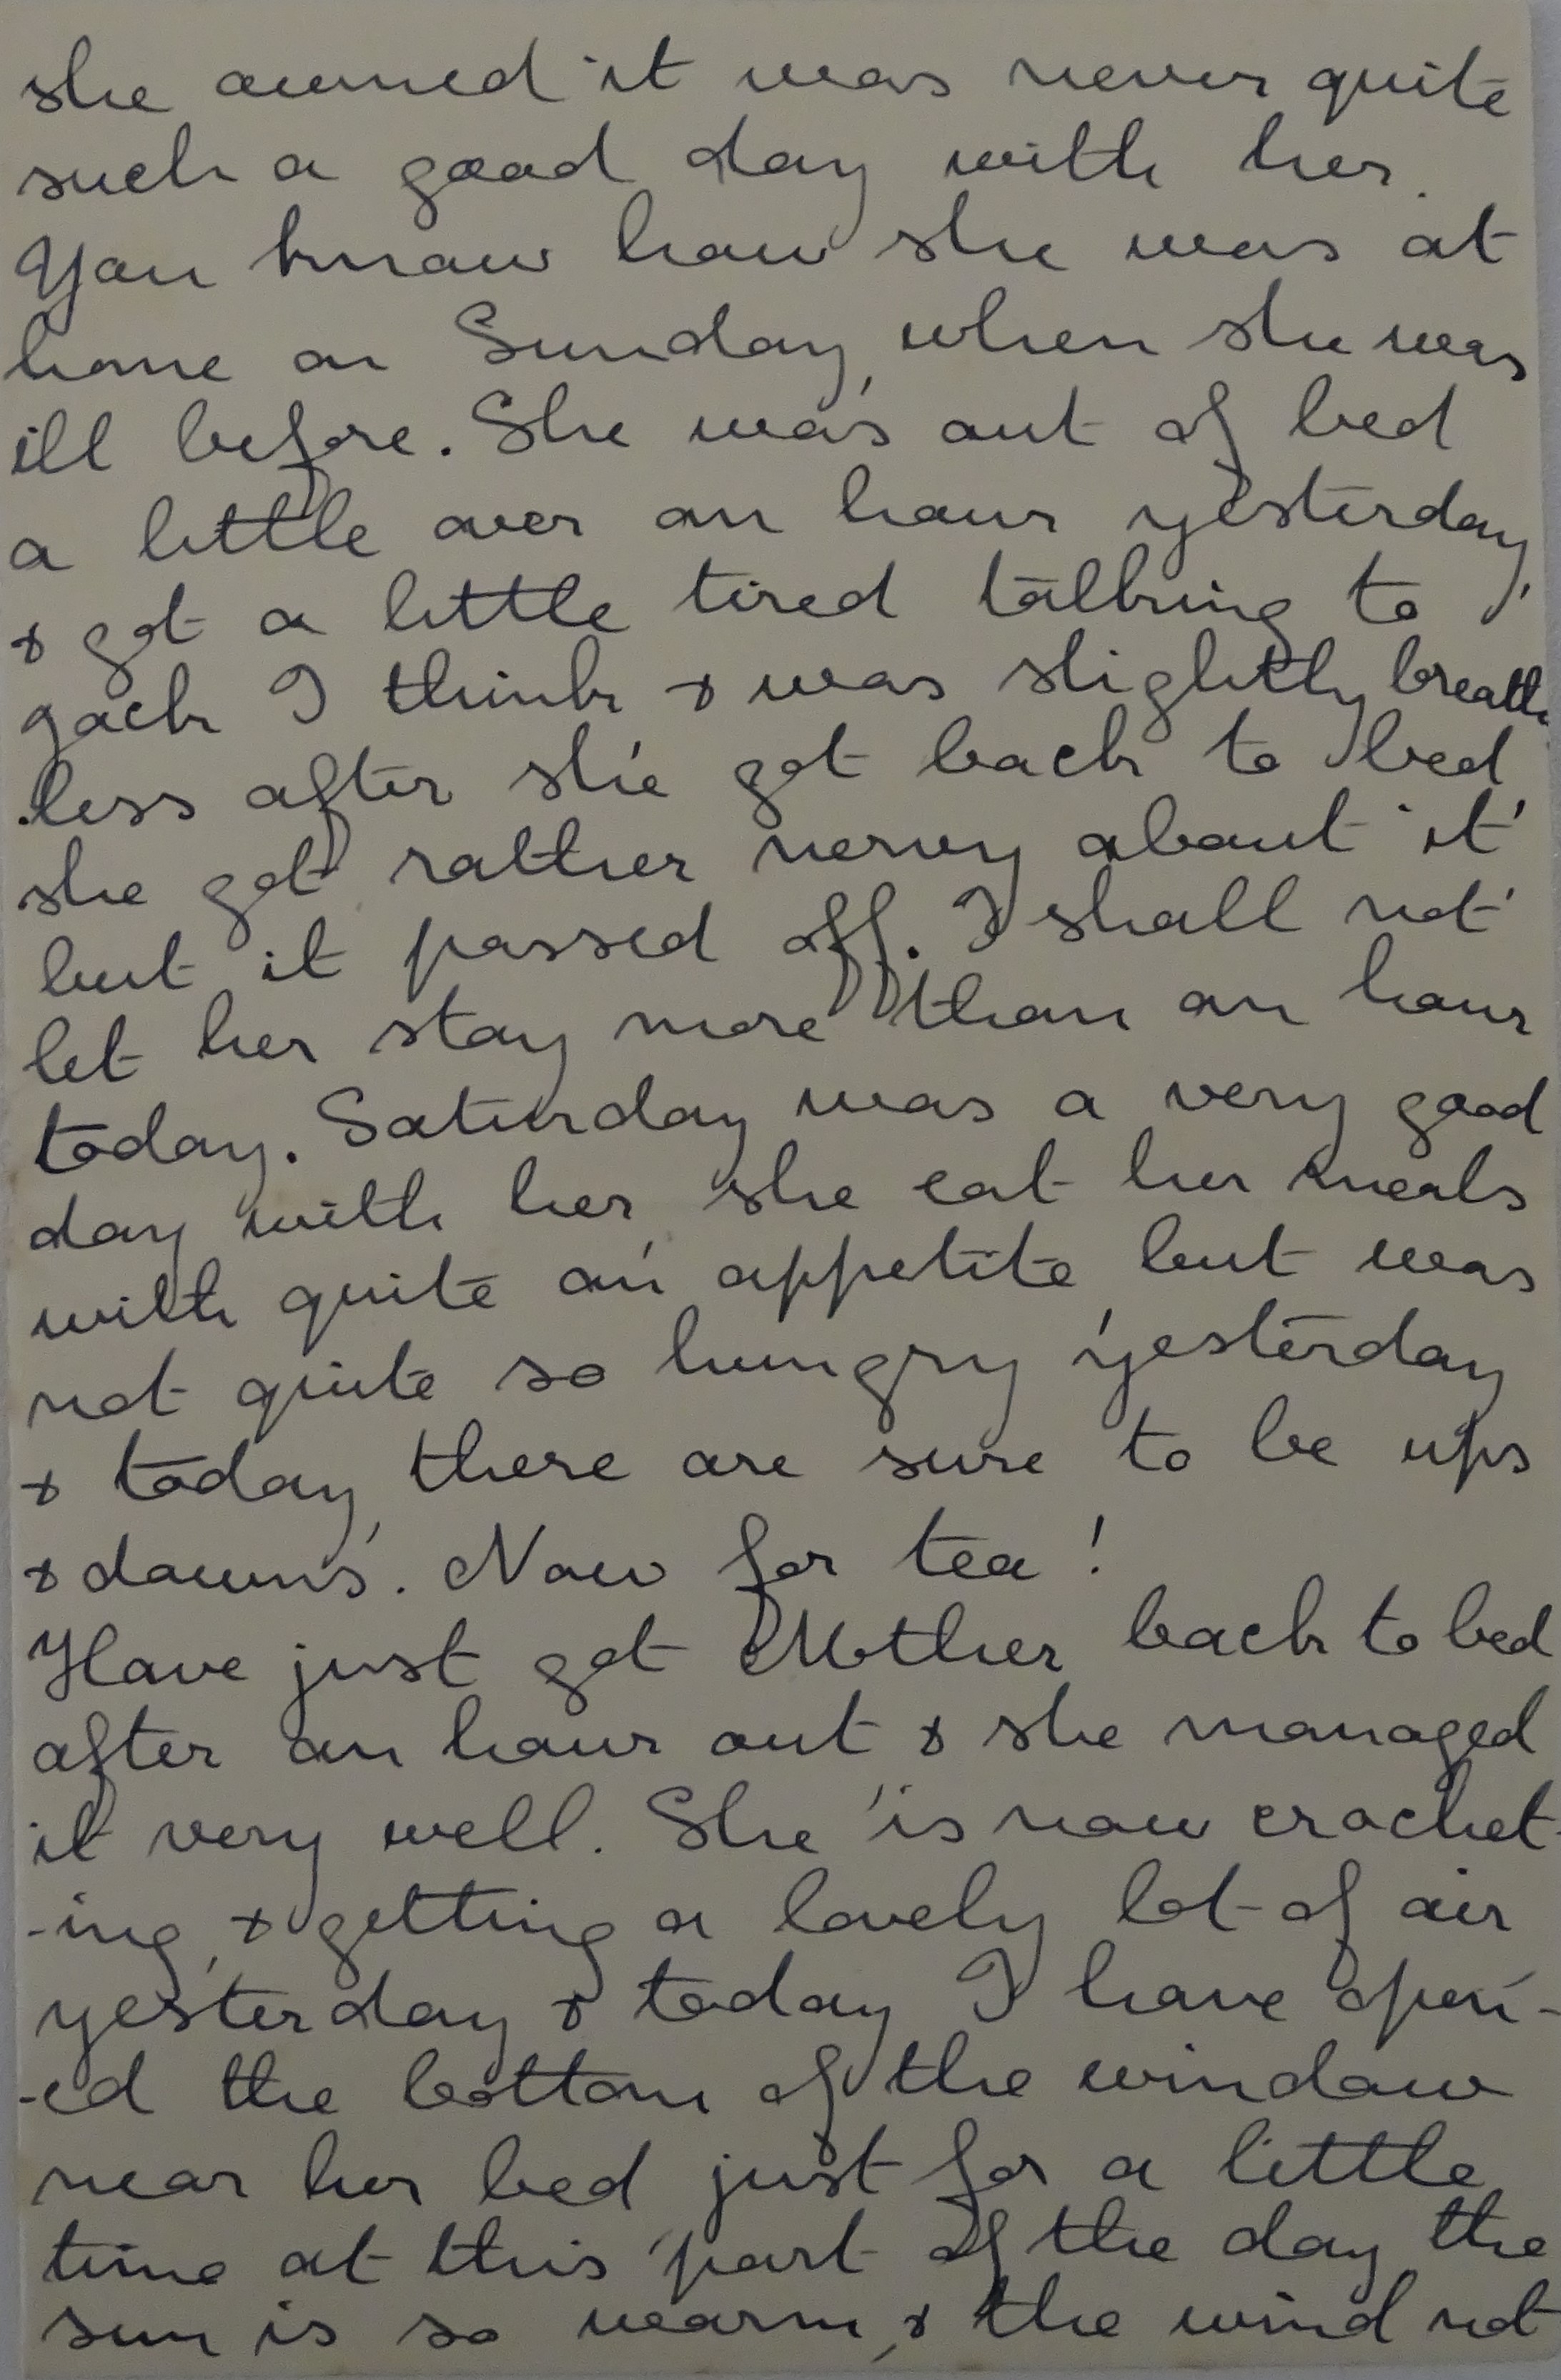 she owned it was never quite
such a good day with her.
You know how she was at
home on Sunday, when she was
ill before. She was out of bed
a little over an hour yesterday,
& got a little tired talking to
Jack I think & was slightly breath
-less after she got back to bed,
she got rather nervy about it
but it passed off. I shall not
let her stay more than an hour
today. Saturday was a very good
day with her, she eat her meals
with quite an appetite, but was
not quite so hungry yesterday
& today, there are sure to be ups
& downs. Now for tea!
Have just got Mother back to bed
after an hour out & she managed
it very well. She is now crochet-
-ing, & getting a lovely lot of air
yesterday & today I have open-
-ed the bottom of the window
near her bed just for a little
time at this part of the day the
sun is so warm, & the wind not